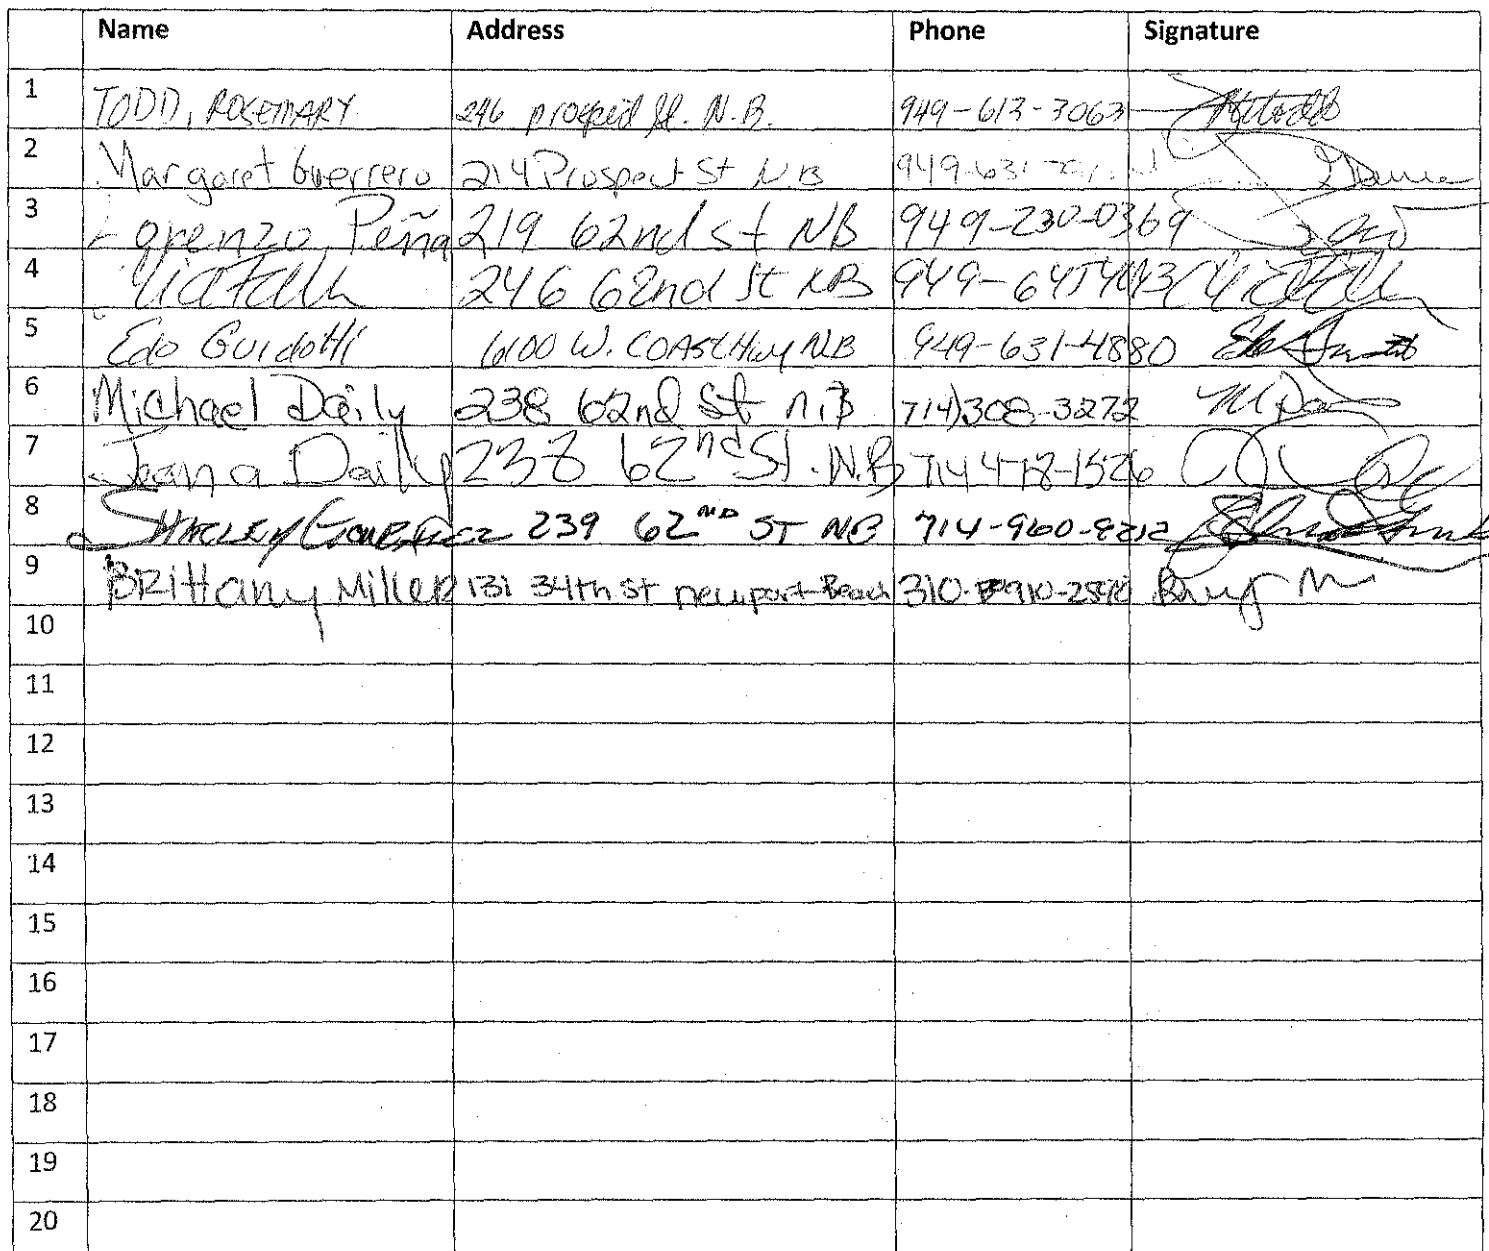 Name Address Phone Signature
1 TODD, ROSEMARY 246 prospect St. N.B. 949-613-3063
2 Margaret Guerrero 214 Prospect St N.B 949-631-
3 Lorenzo Peña 219 62nd st NB 949-230-0369
4 246 62nd St NB
5 Edo Guidotti 6100 W. COAST Hwy NB 949-631-4880
6 Michael Daily 238 62nd St n.B 714)308-3272
7 Jeana Daily 238 62nd St. N.B 714 478-1526
8 239 62ND ST NB 714-960-9212
9 BRittany Miller 131 34th st newport Beach 310-
10
11
12
13
14
15
16
17
18
19
20